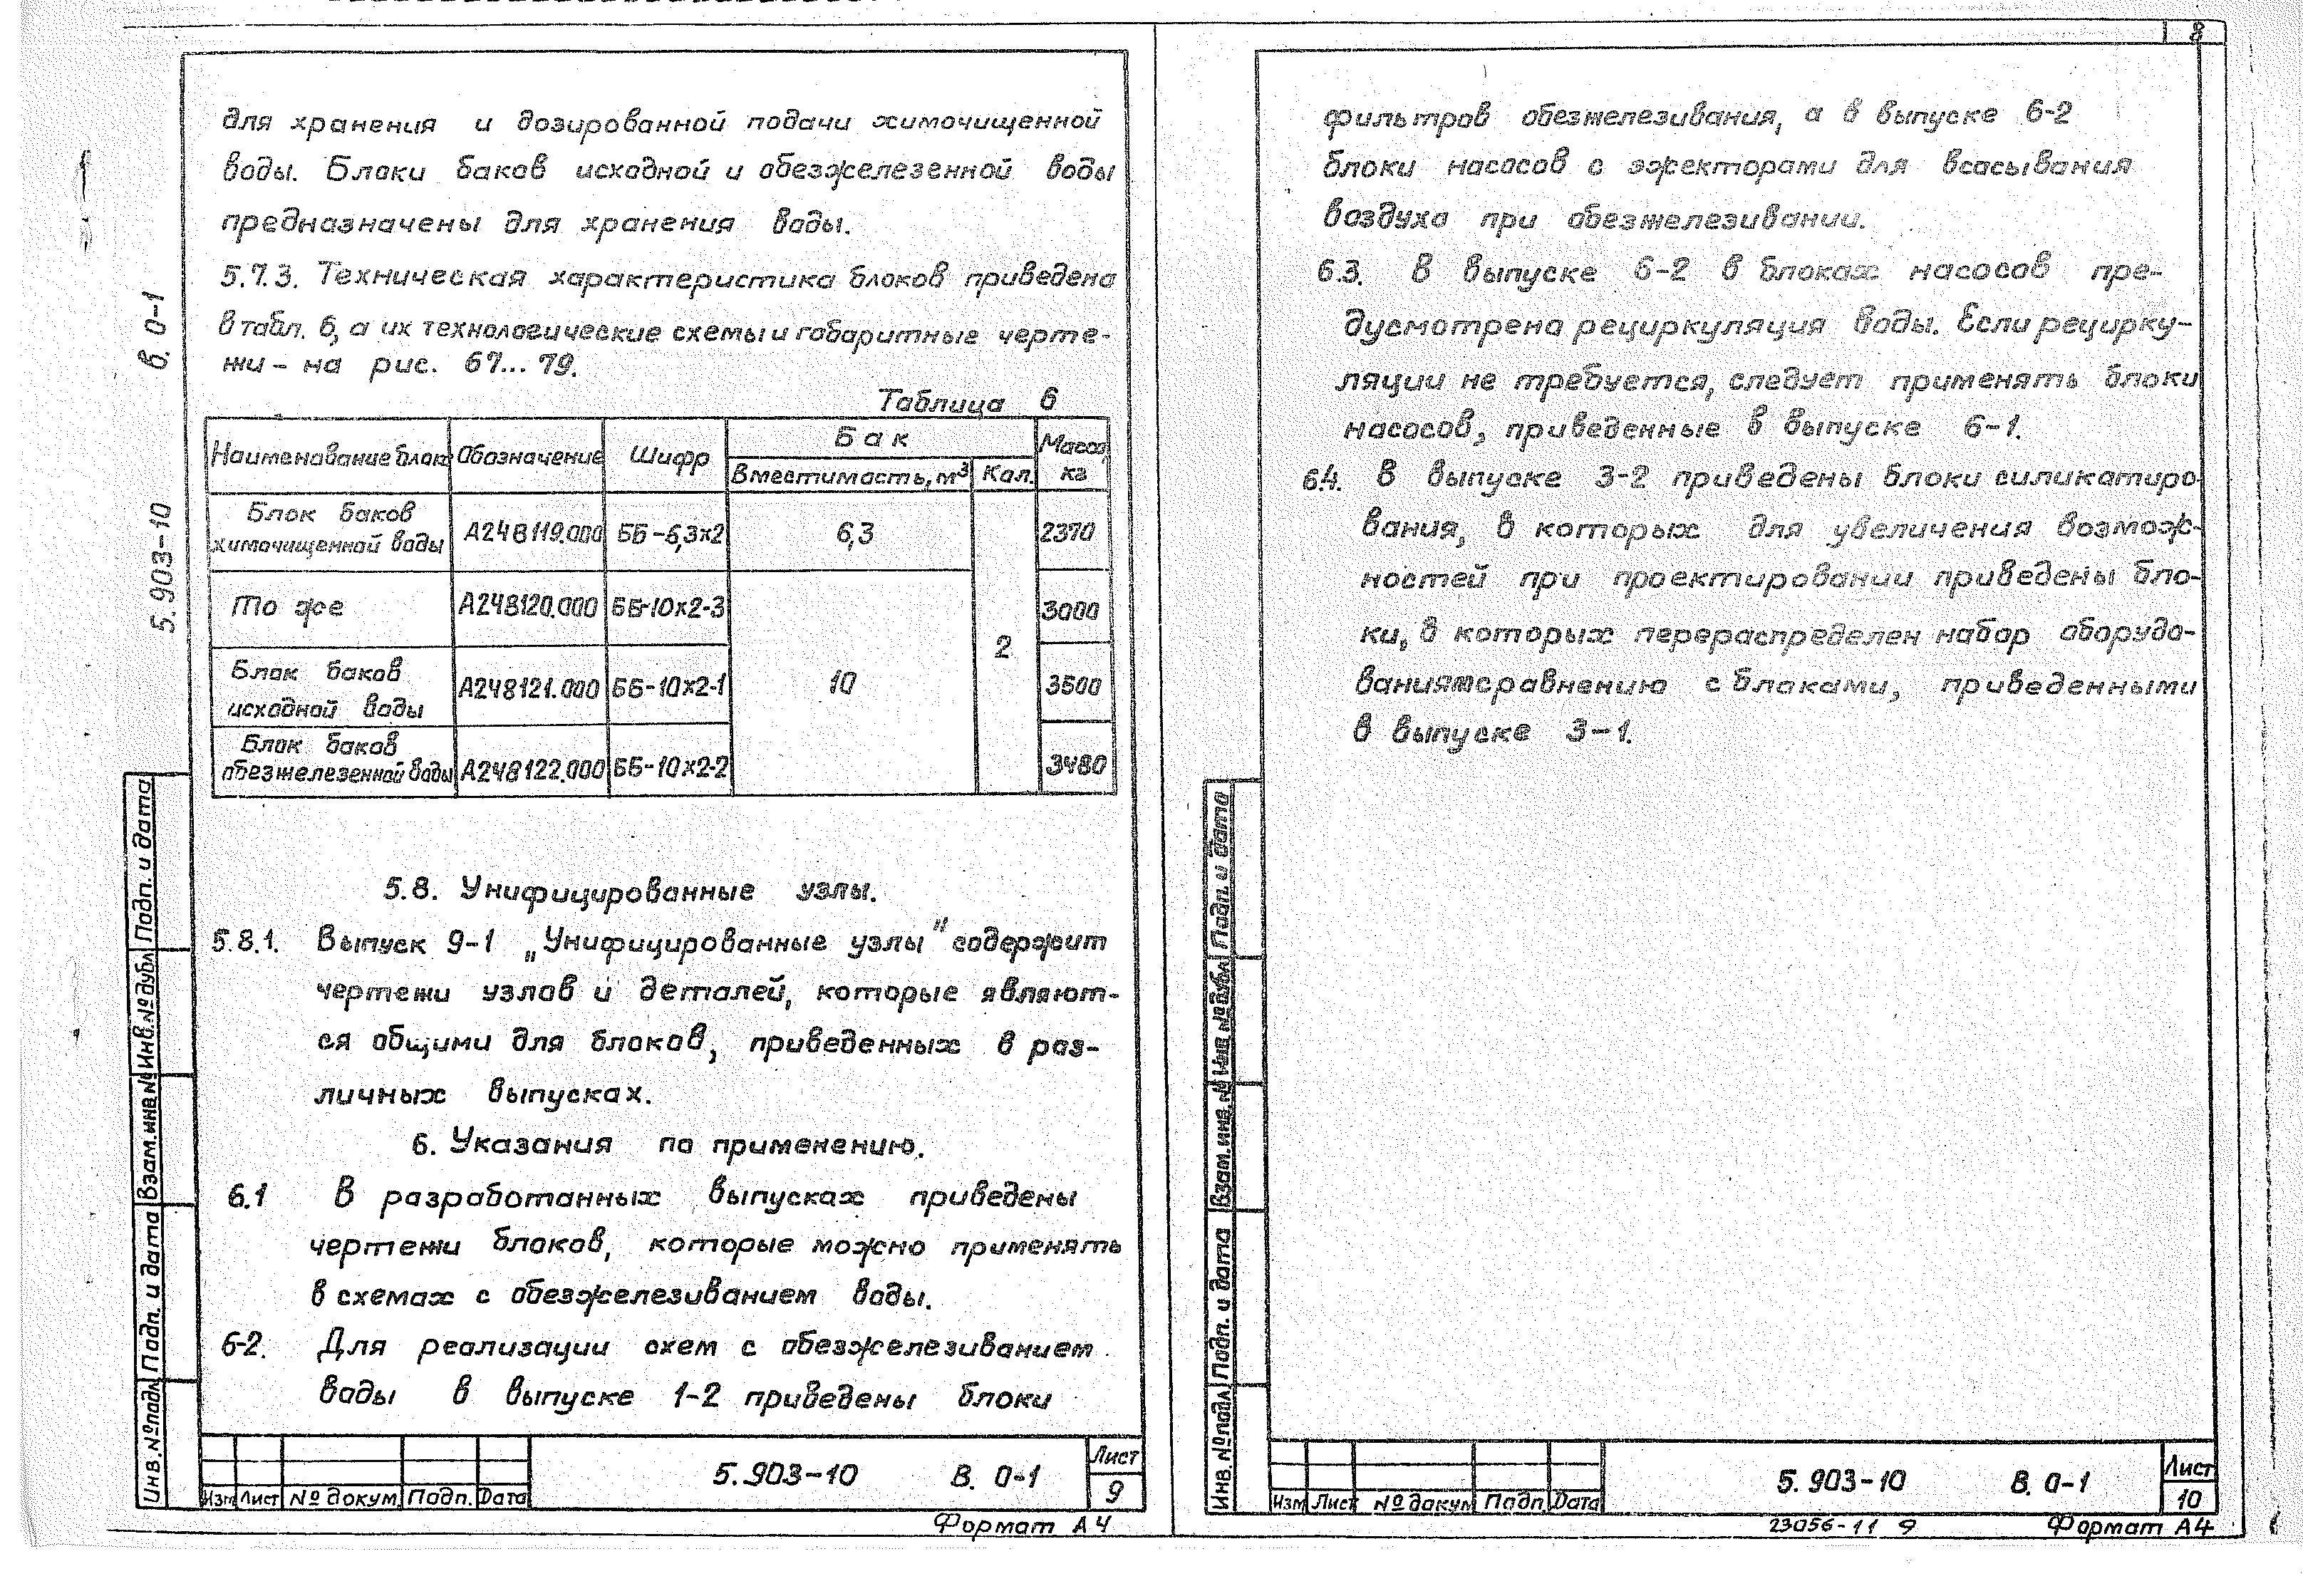 для хранения и дозированной подачи химочищенной
воды. Блоки баков исходной и обезжелезенной воды
предназначены для хранения воды.
5.7.3. Техническая характеристика блоков приведена
в табл. 6, а их технологические схемы и габаритные черте-
жи – на рис. 67... 79.
Таблица 6
Наименование блок Обозначение Шифр Бак Масса, кг
Вместимость, м³ Кол.
Блок баков химочищенной воды А248119.000 ББ-6,3х2 6,3 2 2370
То же А248120.000 ББ-10х2-3 10 3000
Блок баков исходной воды А248121.000 ББ-10х2-1 3500
Блок баков обезжелезенной воды А248122.000 ББ-10х2-2 3480
5.8. Унифицированные узлы.
5.8.1. Выпуск 9-1 „Унифицированные узлы" содержит
чертежи узлов и деталей, которые являют-
ся общими для блоков, приведенных в раз-
личных выпусках.
6. Указания по применению.
6.1 В разработанных выпусках приведены
чертежи блоков, которые можно применять
в схемах с обезжелезиванием воды.
6-2. Для реализации схем с обезжелезиванием
воды в выпуске 1-2 приведены блоки
5.903-10 В. 0-1
Лист
9
Изм Лист № докум. Подп. Дата
Формат А4
в. 0-1
5.903-10
Подп. и дата
Инв.№дубл
Взам.инв.№
Подп. и дата
Инв.№подл
8
фильтров обезжелезивания, а в выпуске 6-2
блоки насосов с эжекторами для всасывания
воздуха при обезжелезивании.
6.3. В выпуске 6-2 в блоках насосов пре-
дусмотрена рециркуляция воды. Если рецирку-
ляции не требуется, следует применять блоки
насосов, приведенные в выпуске 6-1.
6.4. В выпуске 3-2 приведены блоки силикатиро
вания, в которых для увеличения возмож-
ностей при проектировании приведены бло-
ки, в которых перераспределен набор оборудо-
вания сравнению с блоками, приведенными
в выпуске 3-1.
Подп. и дата
Инв №дубл
Взам.инв.№
Подп. и дата
Инв.№подл
5.903-10 В. 0-1
Лист
10
Изм Лист № докум Подп. Дата
23056-11 9
Формат А4